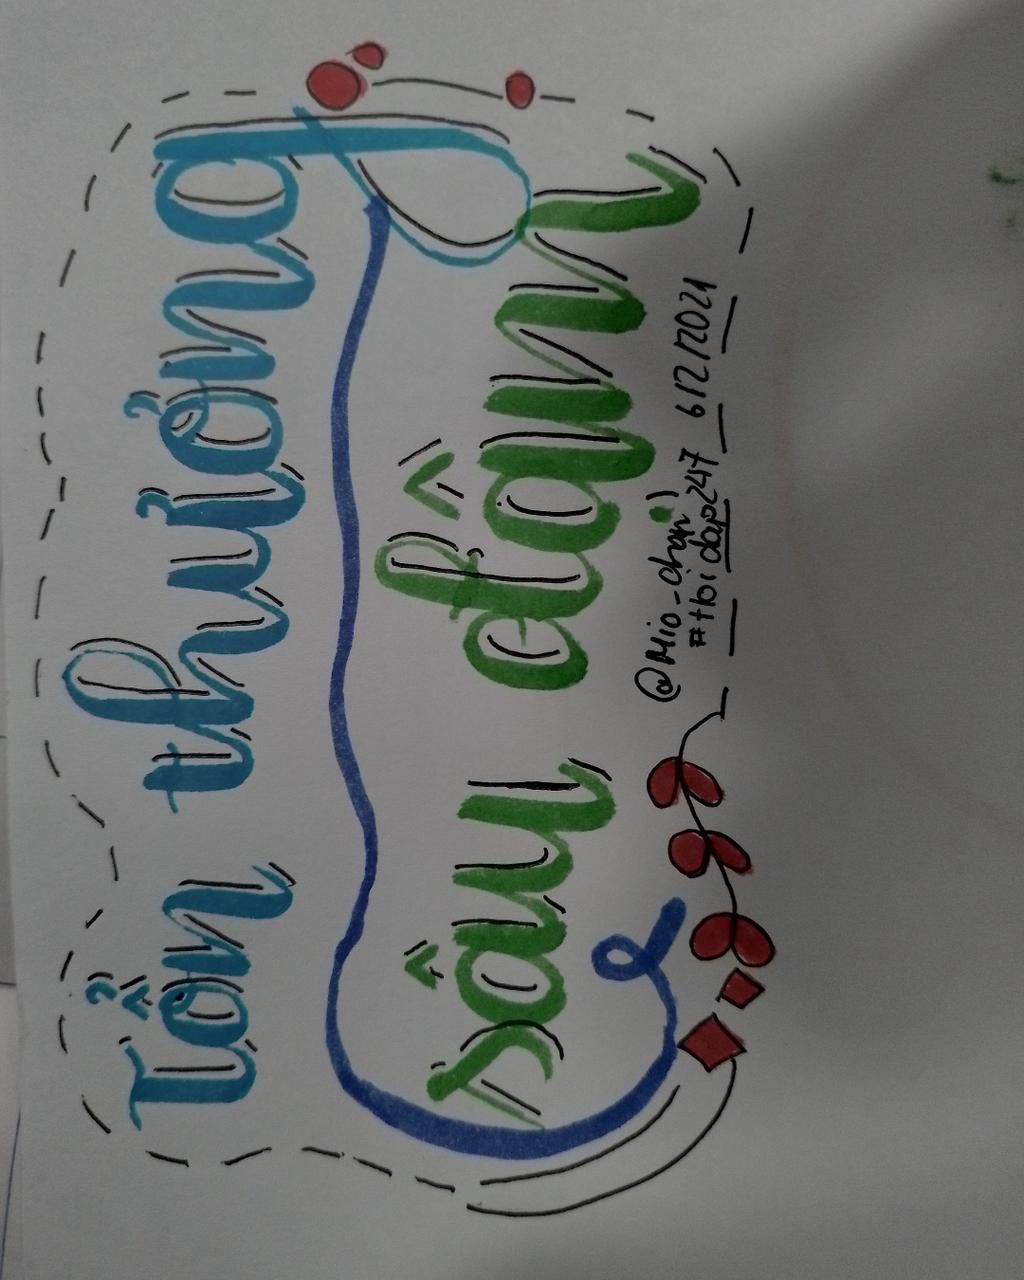 Tổn thương
sâu đậm
@Mio_chan
#tbidap247 6/2/2021